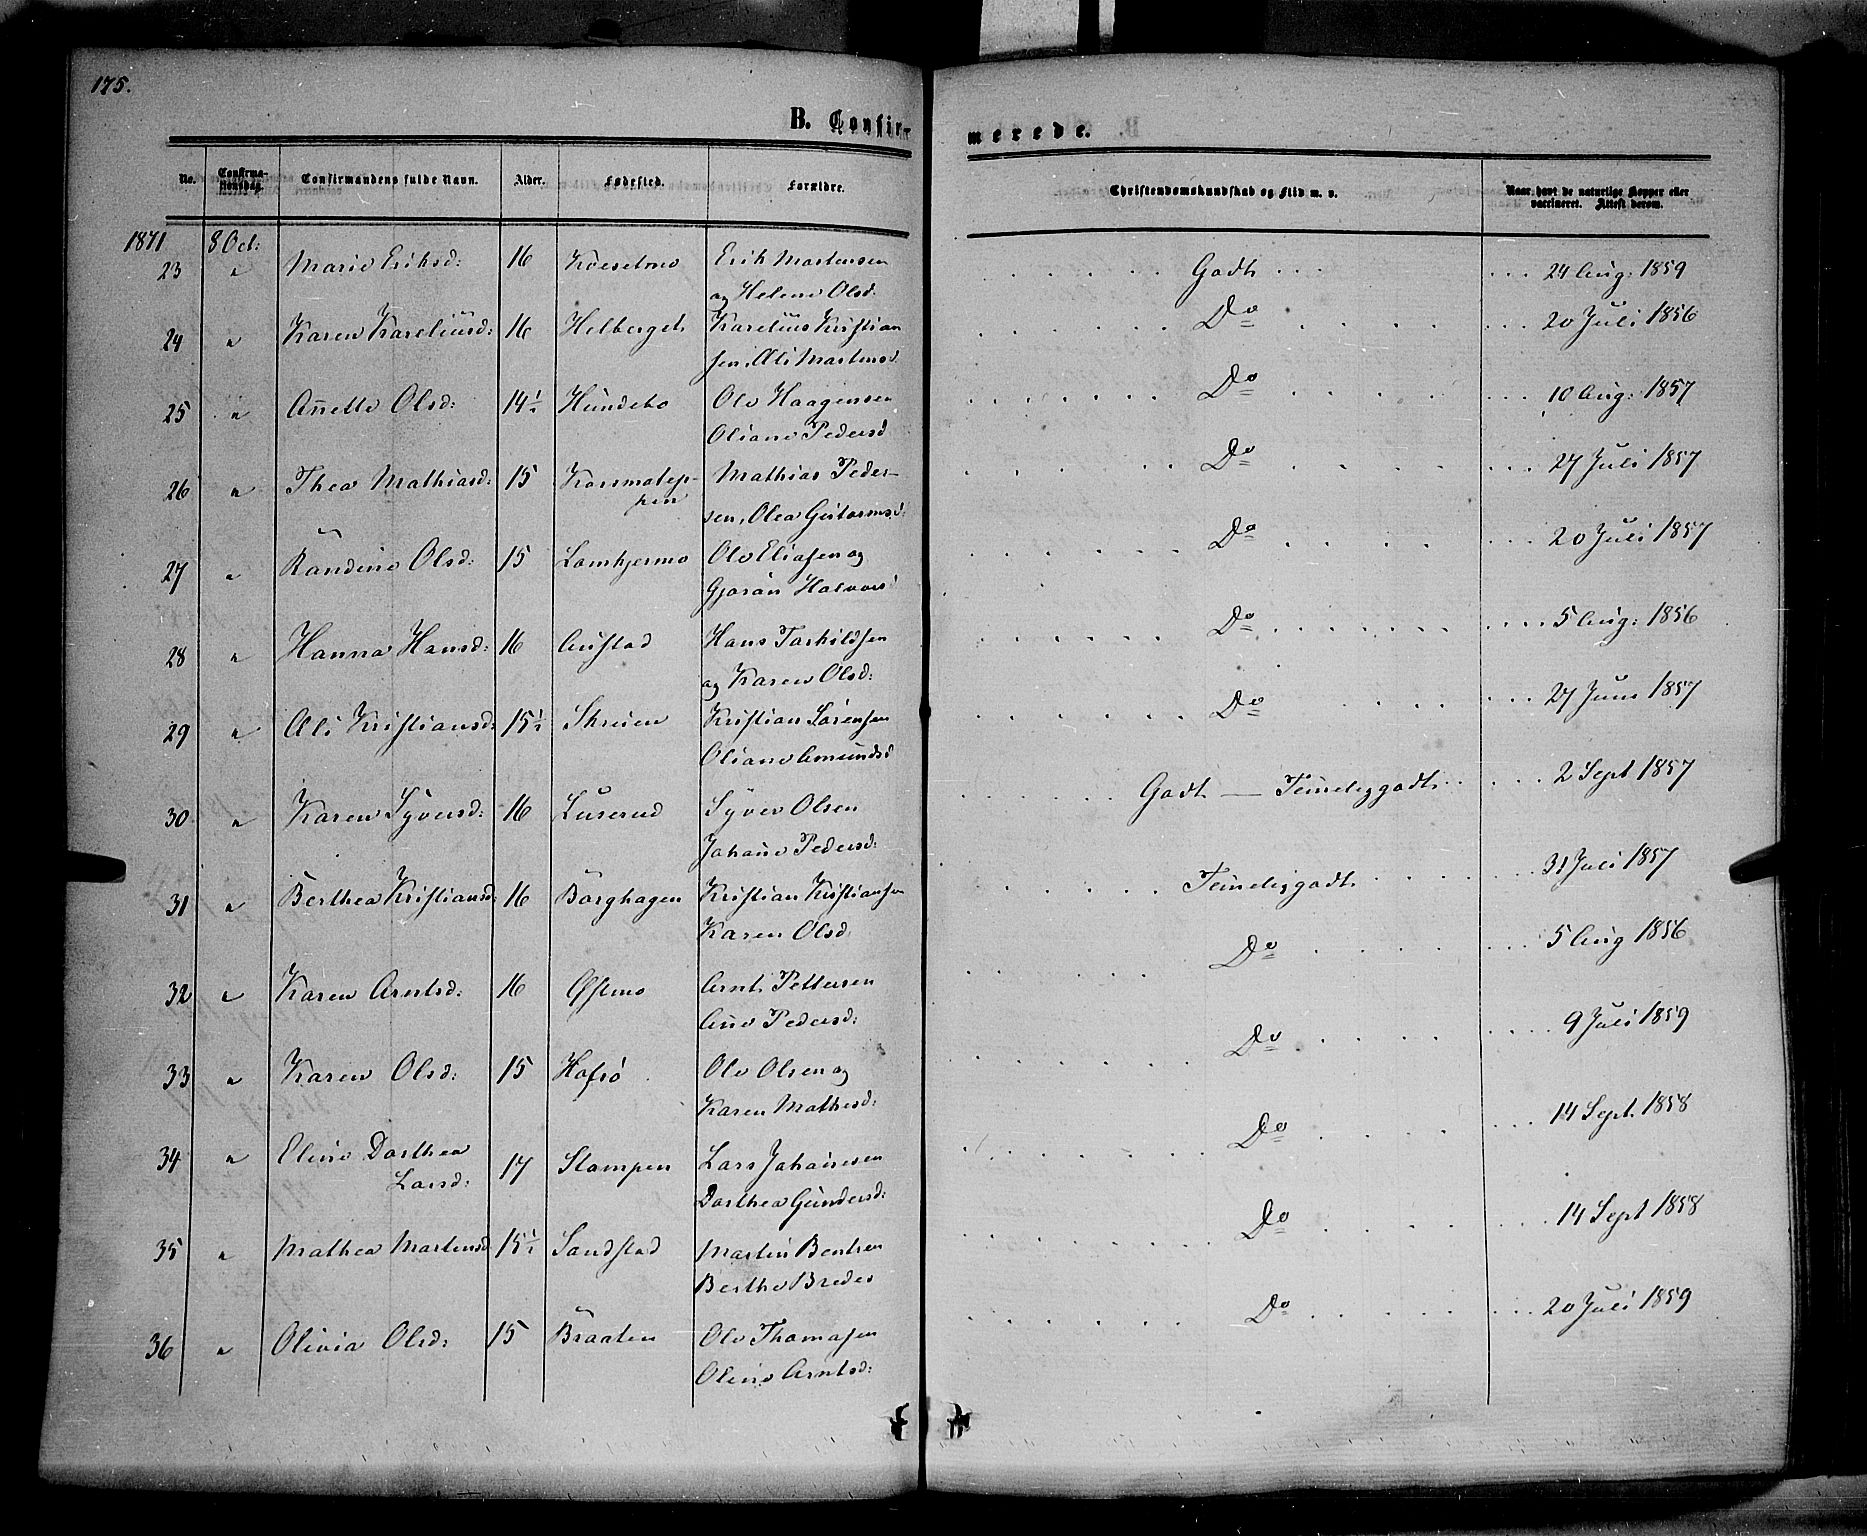 175.
B. Confirmerede.
No. Confirmationsdag. Confirmandens fulde Navn. Alder. Fødested. Forældre. Christendomskundskab og Flid m. v. Naar havt de naturlige Kopper eller vaccineret. Attest derom.
1871 8 Oct:
23 " Marie Eriksd: 16 Erik Martensen Godt 24 Aug: 1859
og Helene Olsd.
24 " Karen Kareliusd: 16 Helberget Karelius Kristian Do 20 Juli 1856
sen, Oli Martensd.
25 " Anette Olsd: 14½ Hundebo Ole Haagensen Do 10 Aug: 1857
Oliane Pedersd
26 " Thea Mathiasd: 15 Mathias Peder- Do 27 Juli 1857
sen, Olea Gutormsd:
27 " Randine Olsd: 15 Lomkjermo Ole Eliasen og Do 20 Juli 1857
Gjøran Halvors
28 " Hanna Hansd: 16 Austad Hans Torkildsen Do 5 Aug: 1856
og Karen Olsd:
29 " Oli Kristiansd: 15½ Skruen Kristian Sørensen Do 27 Juni 1857
Oliane Amundsd
30 " Karen Syversd: 16 Luserud Syver Olsen Godt — Temeliggodt 2 Sept 1857
Johane Pedersd:
31 " Berthea Kristiansd: 16 Borghagen Kristian Kristiansen Temeliggodt 31 Juli 1857
Karen Olsd
32 " Karen Arntsd: 16 Østmo Arnt Pettersen Do 5 Aug 1856
Ane Pedersd:
33 " Karen Olsd: 15 Hofsø Ole Olsen og Do 9 Juli 1859
Karen Mathisd:
34 " Eline Dorthea 17 Stampen Lars Johansen Do 14 Sept. 1858
Larsd: Dorthea Gundersd:
35 " Mathea Martensd 15½ Sandstad Martin Bentsen Do 14 Sept 1858
Berthe Brede
36 " Olivia Olsd: 15 Braaten Ole Thomasen Do 20 Juli 1859
Oline Arntsd: